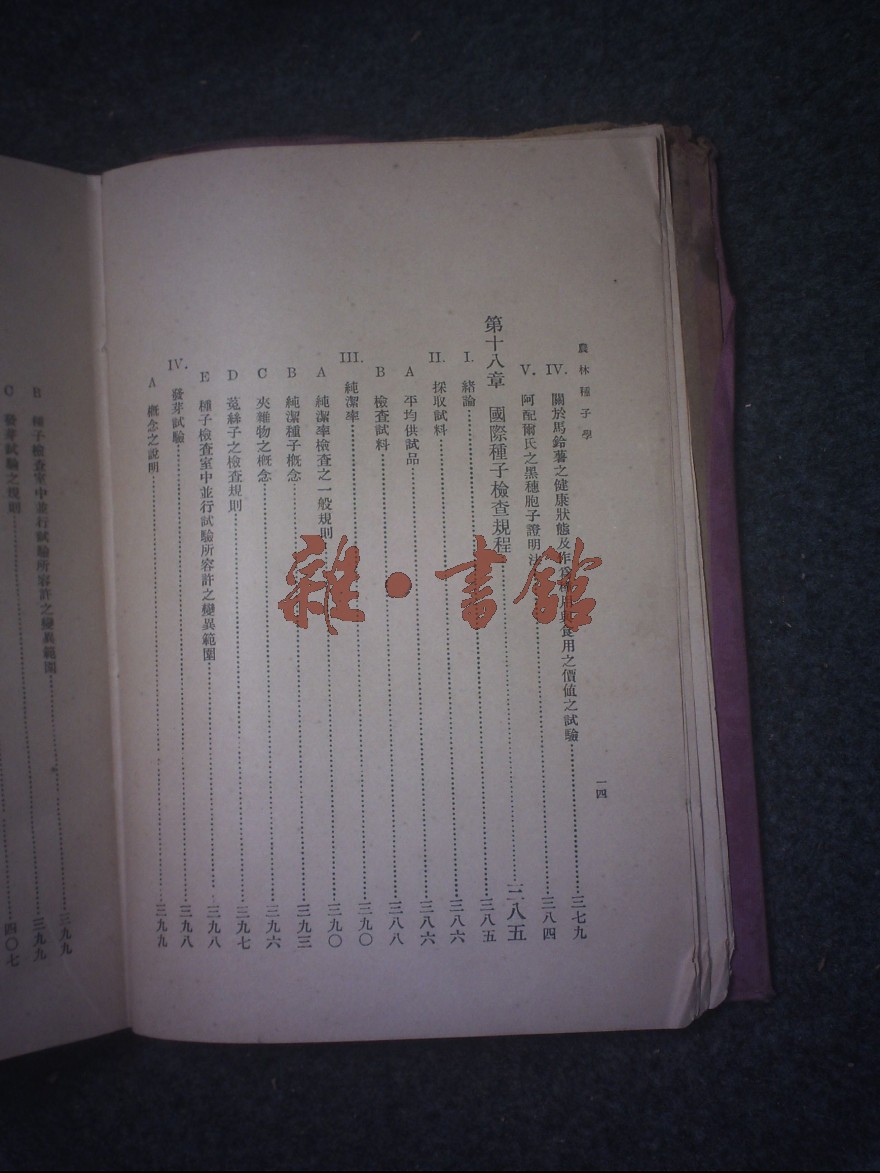 農林種子學
一四
IV. 關於馬鈴薯之健康狀態及作爲種用與食用之價值之試驗 三七九
V. 阿配爾氏之黑穗胞子證明法 三八四
第十八章 國際種子檢查規程 三八五
I. 緒論 三八五
II. 採取試料 三八六
A 平均供試品 三八六
B 檢查試料 三八八
III. 純潔率 三九〇
A 純潔率檢查之一般規則 三九〇
B 純潔種子概念 三九三
C 夾雜物之概念 三九六
D 菟絲子之檢查規則 三九七
E 種子檢查室中並行試驗所容許之變異範圍 三九八
IV. 發芽試驗 三九八
A 概念之說明 三九九
B 種子檢查室中並行試驗所容許之變異範圍 三九九
三九九
C 發芽試驗之規則 四〇七
雜·書館